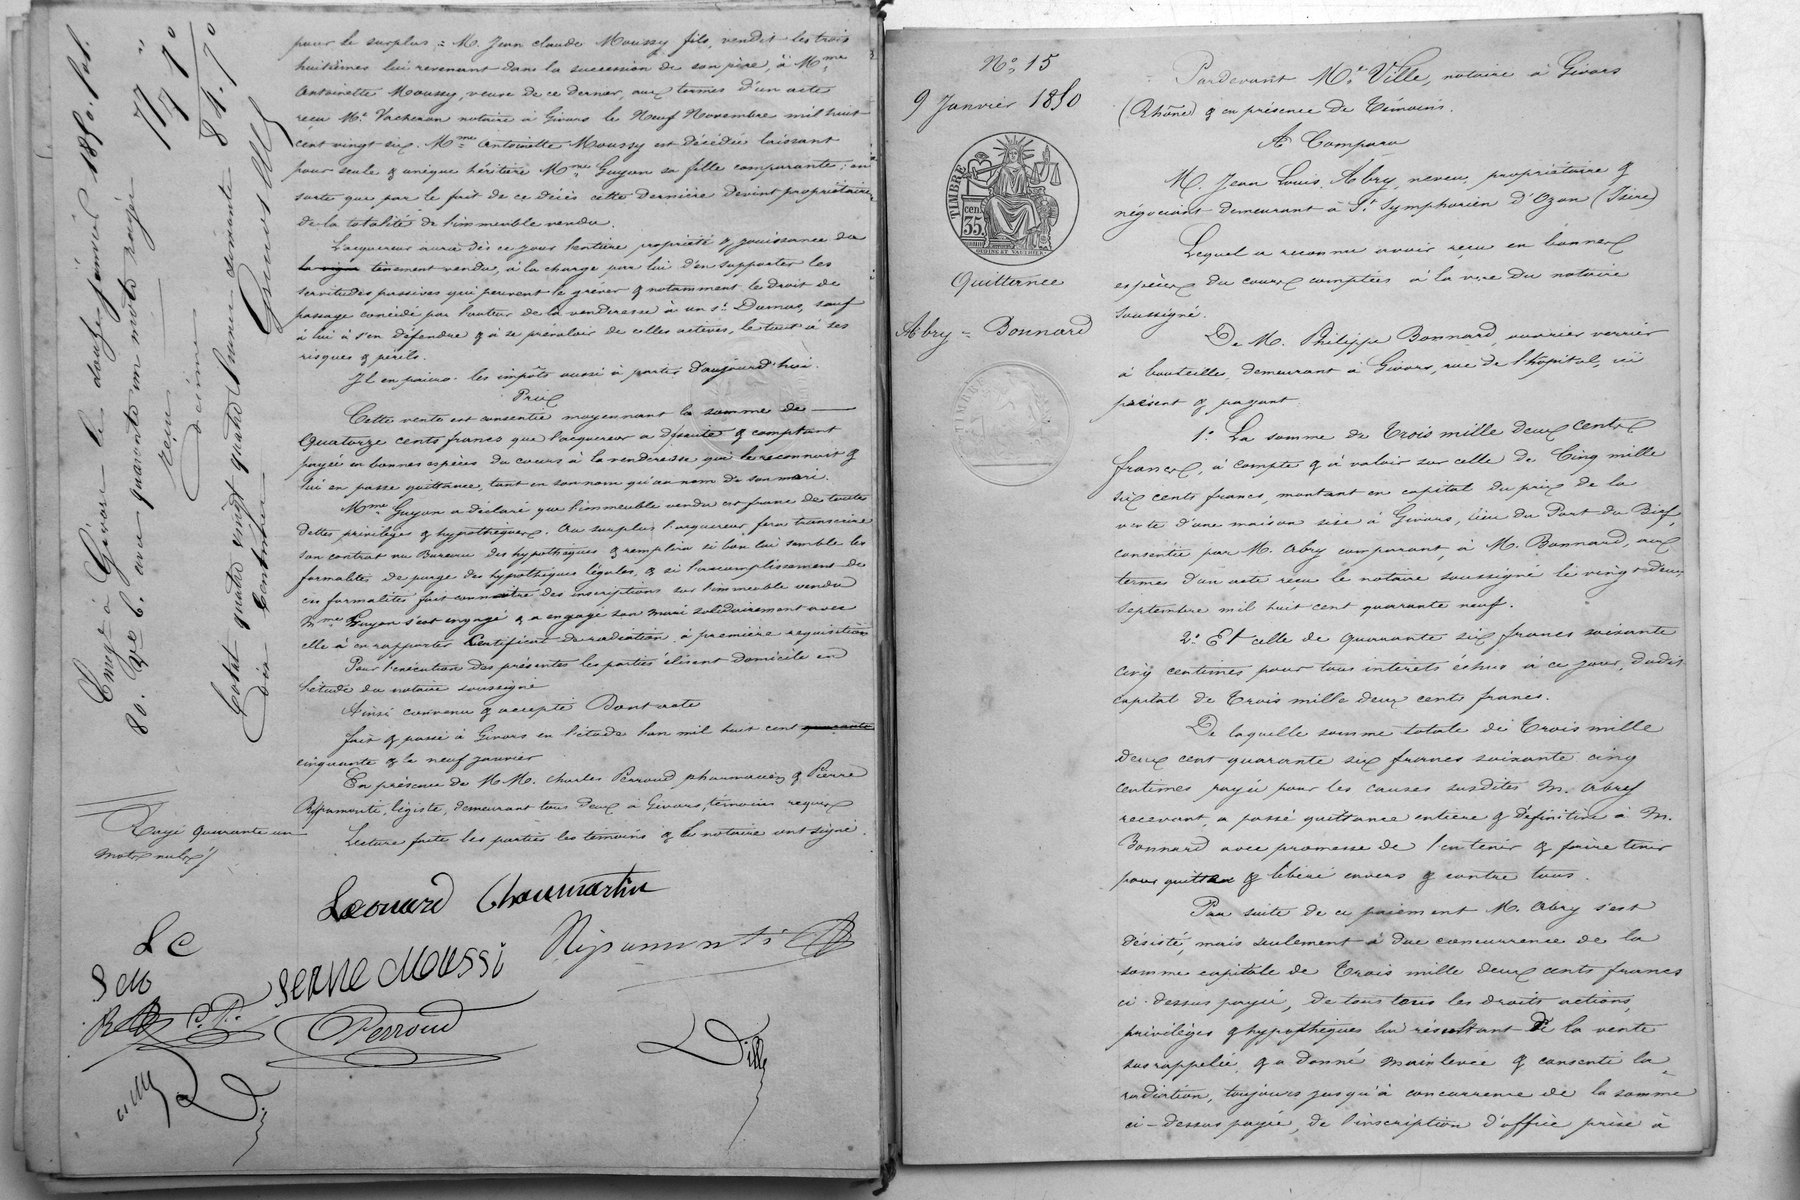 pour le surplus = M. Jean claude Moussy fils, vendit les trois
huitièmes lui revenant dans la succession de son père, à Mme
Antoinette Moussy, veuve de ce dernier, aux termes d'un acte
recu Me Vacheron notaire à Givors le Neuf Novembre mil huit
cent vingt six. Mme Antoinette Moussy est décédée laissant
pour seule & unique héritière Mme Guyon sa fille comparante; en
sorte que par le fait de ce décès cette dernière devint propriétaire
de la totalité de l'immeuble vendu.
L'acquereur aura dès ce jour l'entière propriété & jouissance du
la vigne tènement vendu, à la charge par lui d'en supporter les
servitudes passives qui peuvent le gréver & notamment le droit de
passage concédé par l'auteur de la venderesse à un sr. Dumas, sauf
à lui à s'en défendre & à se prévaloir de celles actives, le tout à ses
risques & périls.
Il en paiera les impôts aussi à partir d'aujourd'hui.
Prix
Cette vente est consentie moyennant la somme de
Quatorze cents francs que l'acquereur a de suite & comptant
payée en bonnes espèces du cours à la venderesse qui le reconnait &
lui en passe quittance, tant en son nom qu'au nom de son mari.
Mme Guyon a déclaré que l'immeuble vendu est franc de toutes
dettes privilèges & hypothèques. Au surplus l'acquereur fera transcrire
son contrat au Bureau des hypothèques & remplira si bon lui semble les
formalités de purge des hypothèques légales, & si l'accomplissement de
ces formalités fait connaitre des inscriptions sur l'immeuble vendu
Mme Guyon s'est engagé & a engagé son mari solidairement avec
elle à en rapporter Certificat de radiation à première requisition
Pour l'exécution des présentes les parties élisent domicile en
l'étude du notaire soussigné
Ainsi convenu & accepté Dont acte
fait & passé à Givors en l'étude l'an mil huit cent quarante
cinquante & le neuf janvier
En présence de M M. Charles Perroud pharmacien & Pierre
Ripamonti, légiste, demeurant tous deux à Givors, témoins requis
Lecture faite les parties les témoins & le notaire ont signé.
Rayé quarante un
mots nuls
Leonard Chaumartin
L C
S M
Serve Moussi
Ripamonti
C. P.
Perroud
Ville
Enregé à Givors le douze janvier 1850. fol.
80. Re c. 6. avec quarante un mots rayés
reçu 77 "
décime 7 70
84. 70
Total quatre vingt quatre francs soixante
dix centimes
No. 15
9 Janvier 1850
TIMBRE
cen. 35.
Quittance
Abry = Bonnard
Pardevant Me. Ville, notaire à Givors
(Rhône) & en présence de témoins.
A Comparu
M. Jean Louis Abry, neveu, propriétaire &
négociant demeurant à St. Symphorien d'Ozon (Isère)
Lequel a reconnu avoir reçu en bonnes
espèces du cours comptées à la vue du notaire
soussigné.
De M. Philippe Bonnard, ouvrier verrier
à bouteille, demeurant à Givors, rue de l'hôpital, ici
présent & payant
1o. La somme de Trois mille deux cents
francs, à compte & à valoir sur celle de Cinq mille
six cents francs, montant en capital du prix de la
vente d'une maison sise à Givors, lieu du Port du Bief,
consentie par M. Abry comparant, à M. Bonnard, aux
termes d'un acte reçu le notaire soussigné le vingt deux
septembre mil huit cent quarante neuf.
2o. Et celle de quarante six francs soixante
cinq centimes pour tous interets échus à ce jour, dudit
capital de Trois mille deux cents francs.
De laquelle somme totale de Trois mille
deux cent quarante six francs soixante cinq
centimes payée pour les causes susdites M. Abry
recevant a passé quittance entière & définitive à M.
Bonnard avec promesse de l'en tenir & faire tenir
pour quitte & libéré envers & contre tous.
Par suite de ce paiement M. Abry s'est
désisté, mais seulement à due concurrence de la
somme capitale de Trois mille deux cents francs
ci-dessus payée, de tous tous les droits actions,
privilèges & hypothèques lui résultant de la vente
susrappelée, & a donné mainlevée & consenti la
radiation, toujours jusqu'à concurrence de la somme
ci-dessus payée, de l'inscription d'office prise à